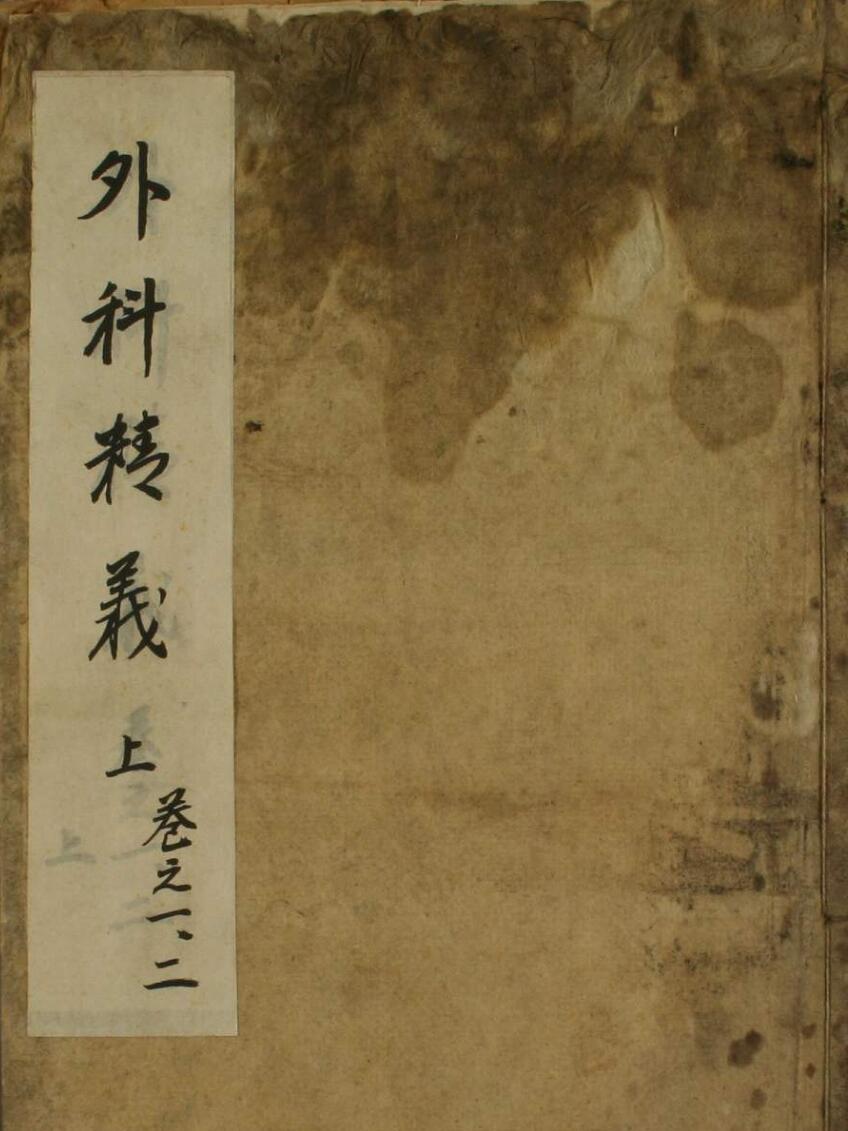 外科精義 上
巻之一、二